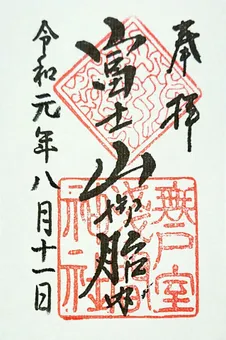 奉拝
富士山御胎内
令和元年八月十一日
無戸室
神社